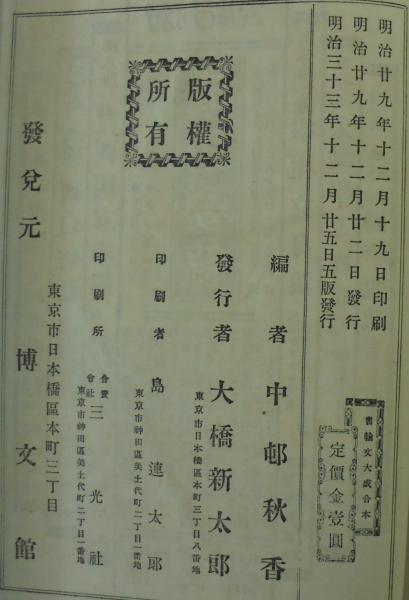 明治廿九年十二月十九日印刷
明治廿九年十二月廿二日發行
明治三十三年十二月廿五日五版發行
書翰文大成合本
定價金壹圓
版權
所有
編者 中邨秋香
發行者 大橋新太郎
東京市日本橋區本町三丁目八番地
印刷者 島連太郎
東京市神田區美土代町二丁目一番地
印刷所 合資會社 三光社
東京市神田區美土代町二丁目一番地
發兌元 博文館
東京市日本橋區本町三丁目